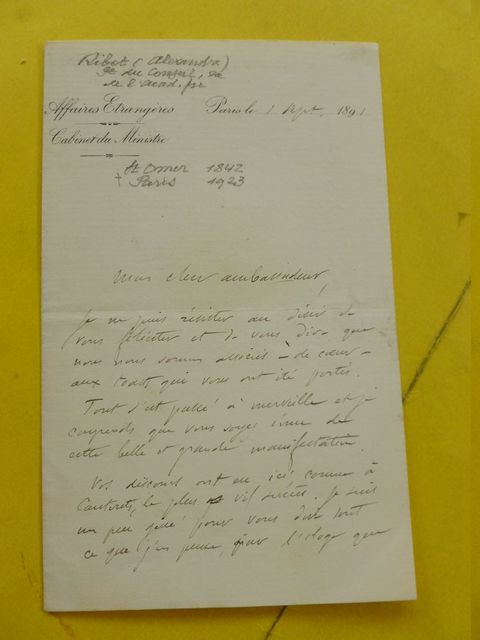 Ribot (Alexandre)
Pt du Conseil, de
de l'Acad. fse
Affaires Etrangères
Paris, le 1 Sept. 1891
Cabinet du Ministre
St Omer 1842
† Paris 1923
Mon cher ambassadeur,
Je ne puis résister au désir de
vous féliciter et de vous dire que
nous nous sommes associés de cœur
aux toast qui vous ont été portés.
Tout s'est passé à merveille et je
comprends que vous soyez ému de
cette belle et grande manifestation.
Vos discours ont eu ici comme à
Cauterets, le plus vif succès. Je suis
un peu gêné pour vous dire tout
ce que j'en pense, car l'éloge que